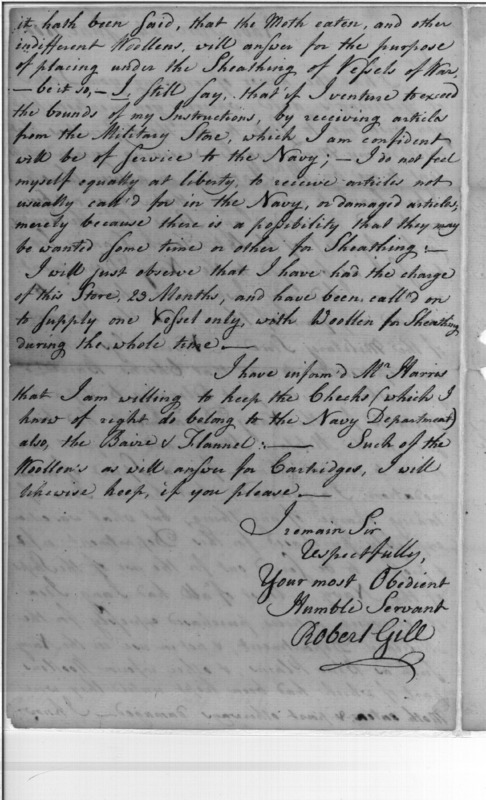 it, hath been said, that the Moth eaten, and other
indifferent Woollens, will answer for the purpose
of placing under the Sheathing of Vessels of War,
– be it so, – I, still say, that if I venture to exceed
the bounds of my Instructions, by receiving articles
from the Military Store, which I am confident
will be of service to the Navy; – I do not feel
myself equally at liberty, to receive articles not
usually call'd for in the Navy, or damaged articles,
merely because there is a possibility that they may
be wanted some time or other for Sheathing: –
I will just observe that I have had the charge
of this Store, 23 Months, and have been call'd on
to supply one Vessel only, with Woollen for Sheathing
during the whole time –
I have inform'd Mr. Harris
that I am willing to keep the Checks (which I
know of right do belong to the Navy Department)
also, the Baize & Flannel: – Such of the
Woollen's as will answer for Cartridges, I will
likewise keep, if you please –
I remain Sir
respectfully,
Your most Obedient
Humble Servant
Robert Gill